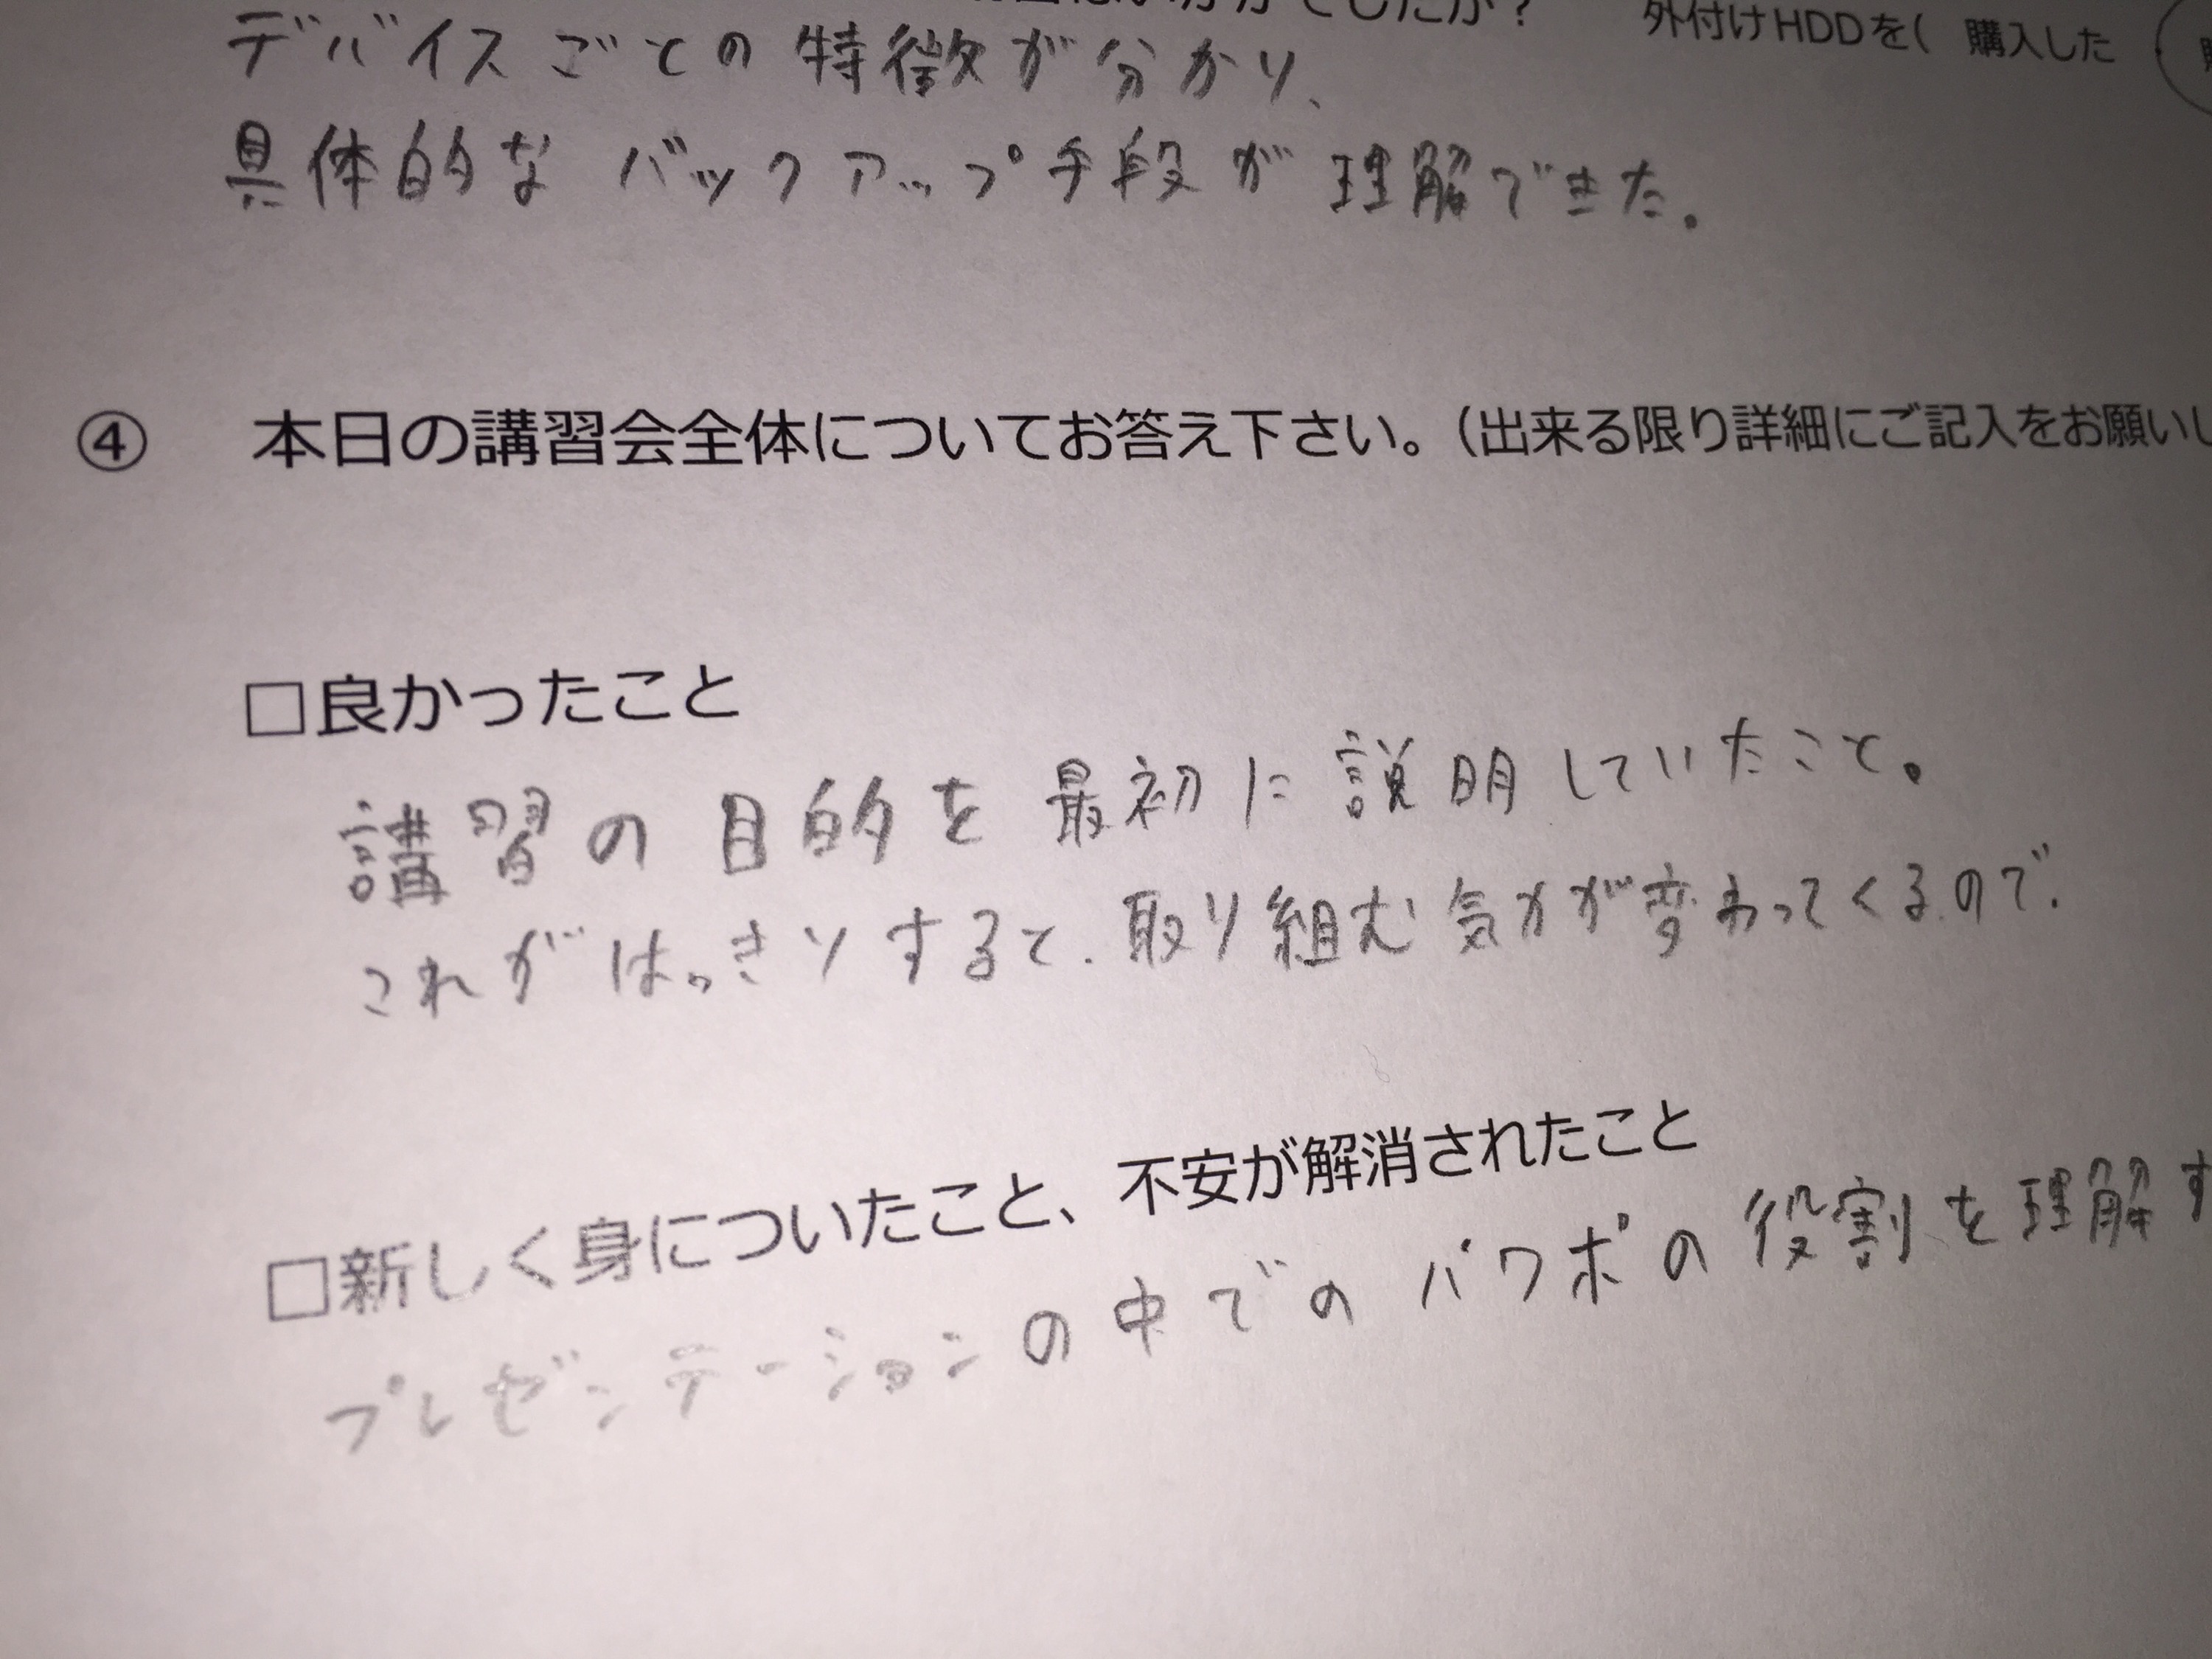 でしたか？　外付けHDDを（ 購入した
デバイスごとの特徴が分かり、
具体的なバックアップ手段が理解できた。
④　本日の講習会全体についてお答え下さい。（出来る限り詳細にご記入をお願いし
□良かったこと
講習の目的を最初に説明していたこと。
これがはっきりすると、取り組む気力が変わってくるので。
□新しく身についたこと、不安が解消されたこと
プレゼンテーションの中でのパワポの役割を理解す